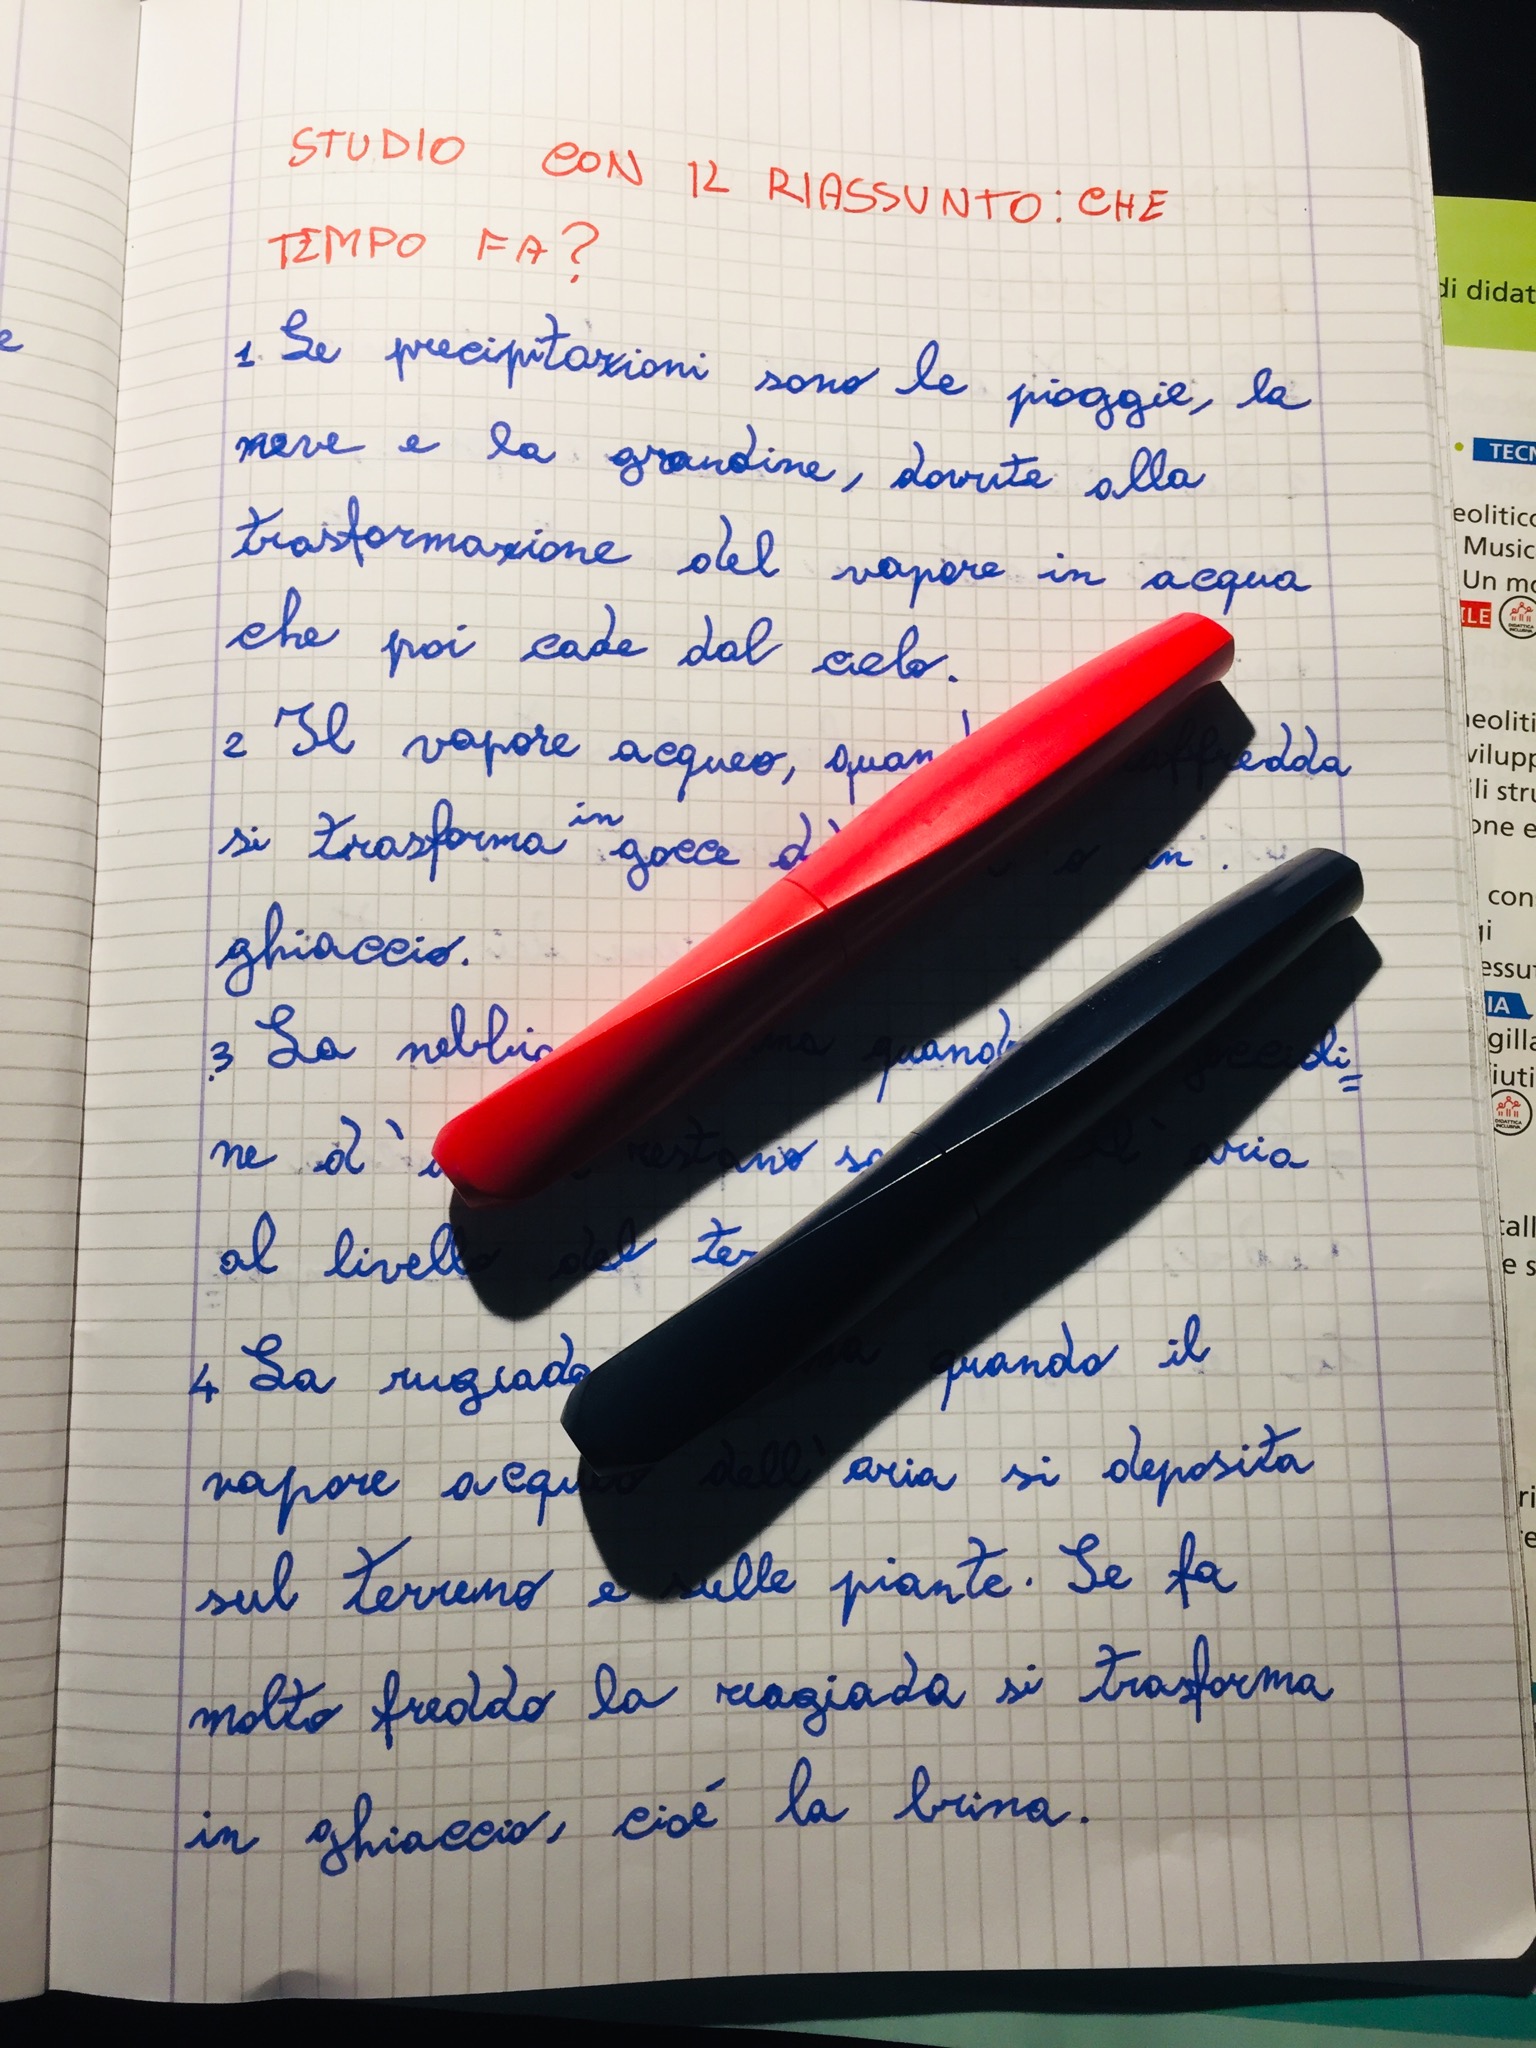 STUDIO CON IL RIASSUNTO: CHE
TEMPO FA?
1. Le precipitazioni sono le pioggie, la
neve e la grandine, dovute alla
trasformazione del vapore in acqua
che poi cade dal cielo.
2 Il vapore acqueo, raffredda
si trasforma in gocce o in .
ghiaccio.
3 La nebbia quando goccioli=
ne d' restano aria
al livello del
4 La rugiada quando il
vapore acqueo dell'aria si deposita
sul terreno e sulle piante. Se fa
molto freddo la rugiada si trasforma
in ghiaccio, cioé la brina.
e
di didat
TECN
eolitico
Music
Un mo
ILE
DIDATTICA
INCLUSIVA
neoliti
vilupp
li stru
one e
con
gi
essut
IA
gilla
iuti
DIDATTICA
INCLUSIVA
tall
e s
ri
re